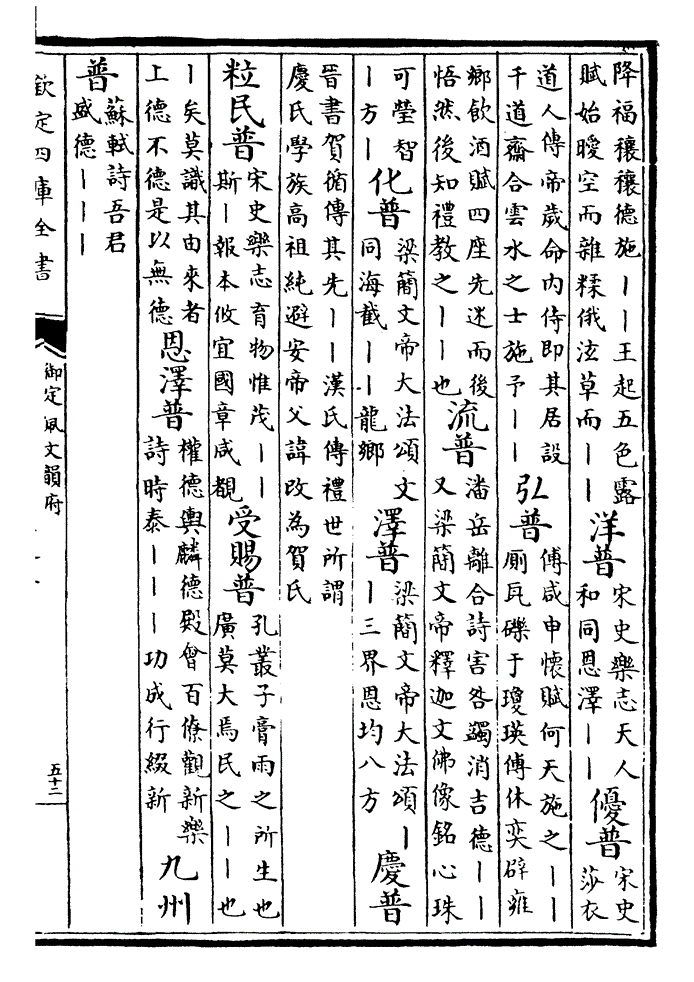 降福穰穰德施丨丨王起五色露
賦始曖空而雜糅俄泫草而丨丨
洋普
宋史樂志天人
和同恩澤丨丨
優普
宋史
莎衣
道人傳帝歲命内侍即其居設
千道齋合雲水之士施予丨丨
弘普
傅咸申懷賦何天施之丨丨
厠瓦礫于瓊瑛傅休奕辟雍
鄉飲酒賦四座先迷而後
悟然後知禮教之丨丨也
流普
潘岳離合詩害咎蠲消吉德丨丨
又梁簡文帝釋迦文佛像銘心珠
可瑩智
丨方丨
化普
梁簡文帝大法頌文
同海截丨丨龍鄉
澤普
梁簡文帝大法頌丨
丨三界恩均八方
慶普
晉書賀循傳其先丨丨漢氏傳禮世所謂
慶氏學族高祖純避安帝父諱改為賀氏
粒民普
宋史樂志育物惟茂丨丨
斯丨報本攸宜國章咸覩
受賜普
孔叢子膏雨之所生也
廣莫大焉民之丨丨也
丨矣莫識其由來者
上德不德是以無德
恩澤普
權德輿麟德殿會百僚觀新樂
詩時泰丨丨丨功成行綴新
九州
普
蘇軾詩吾君
盛德丨丨丨
欽定四庫全書
御定佩文韻府
五十二